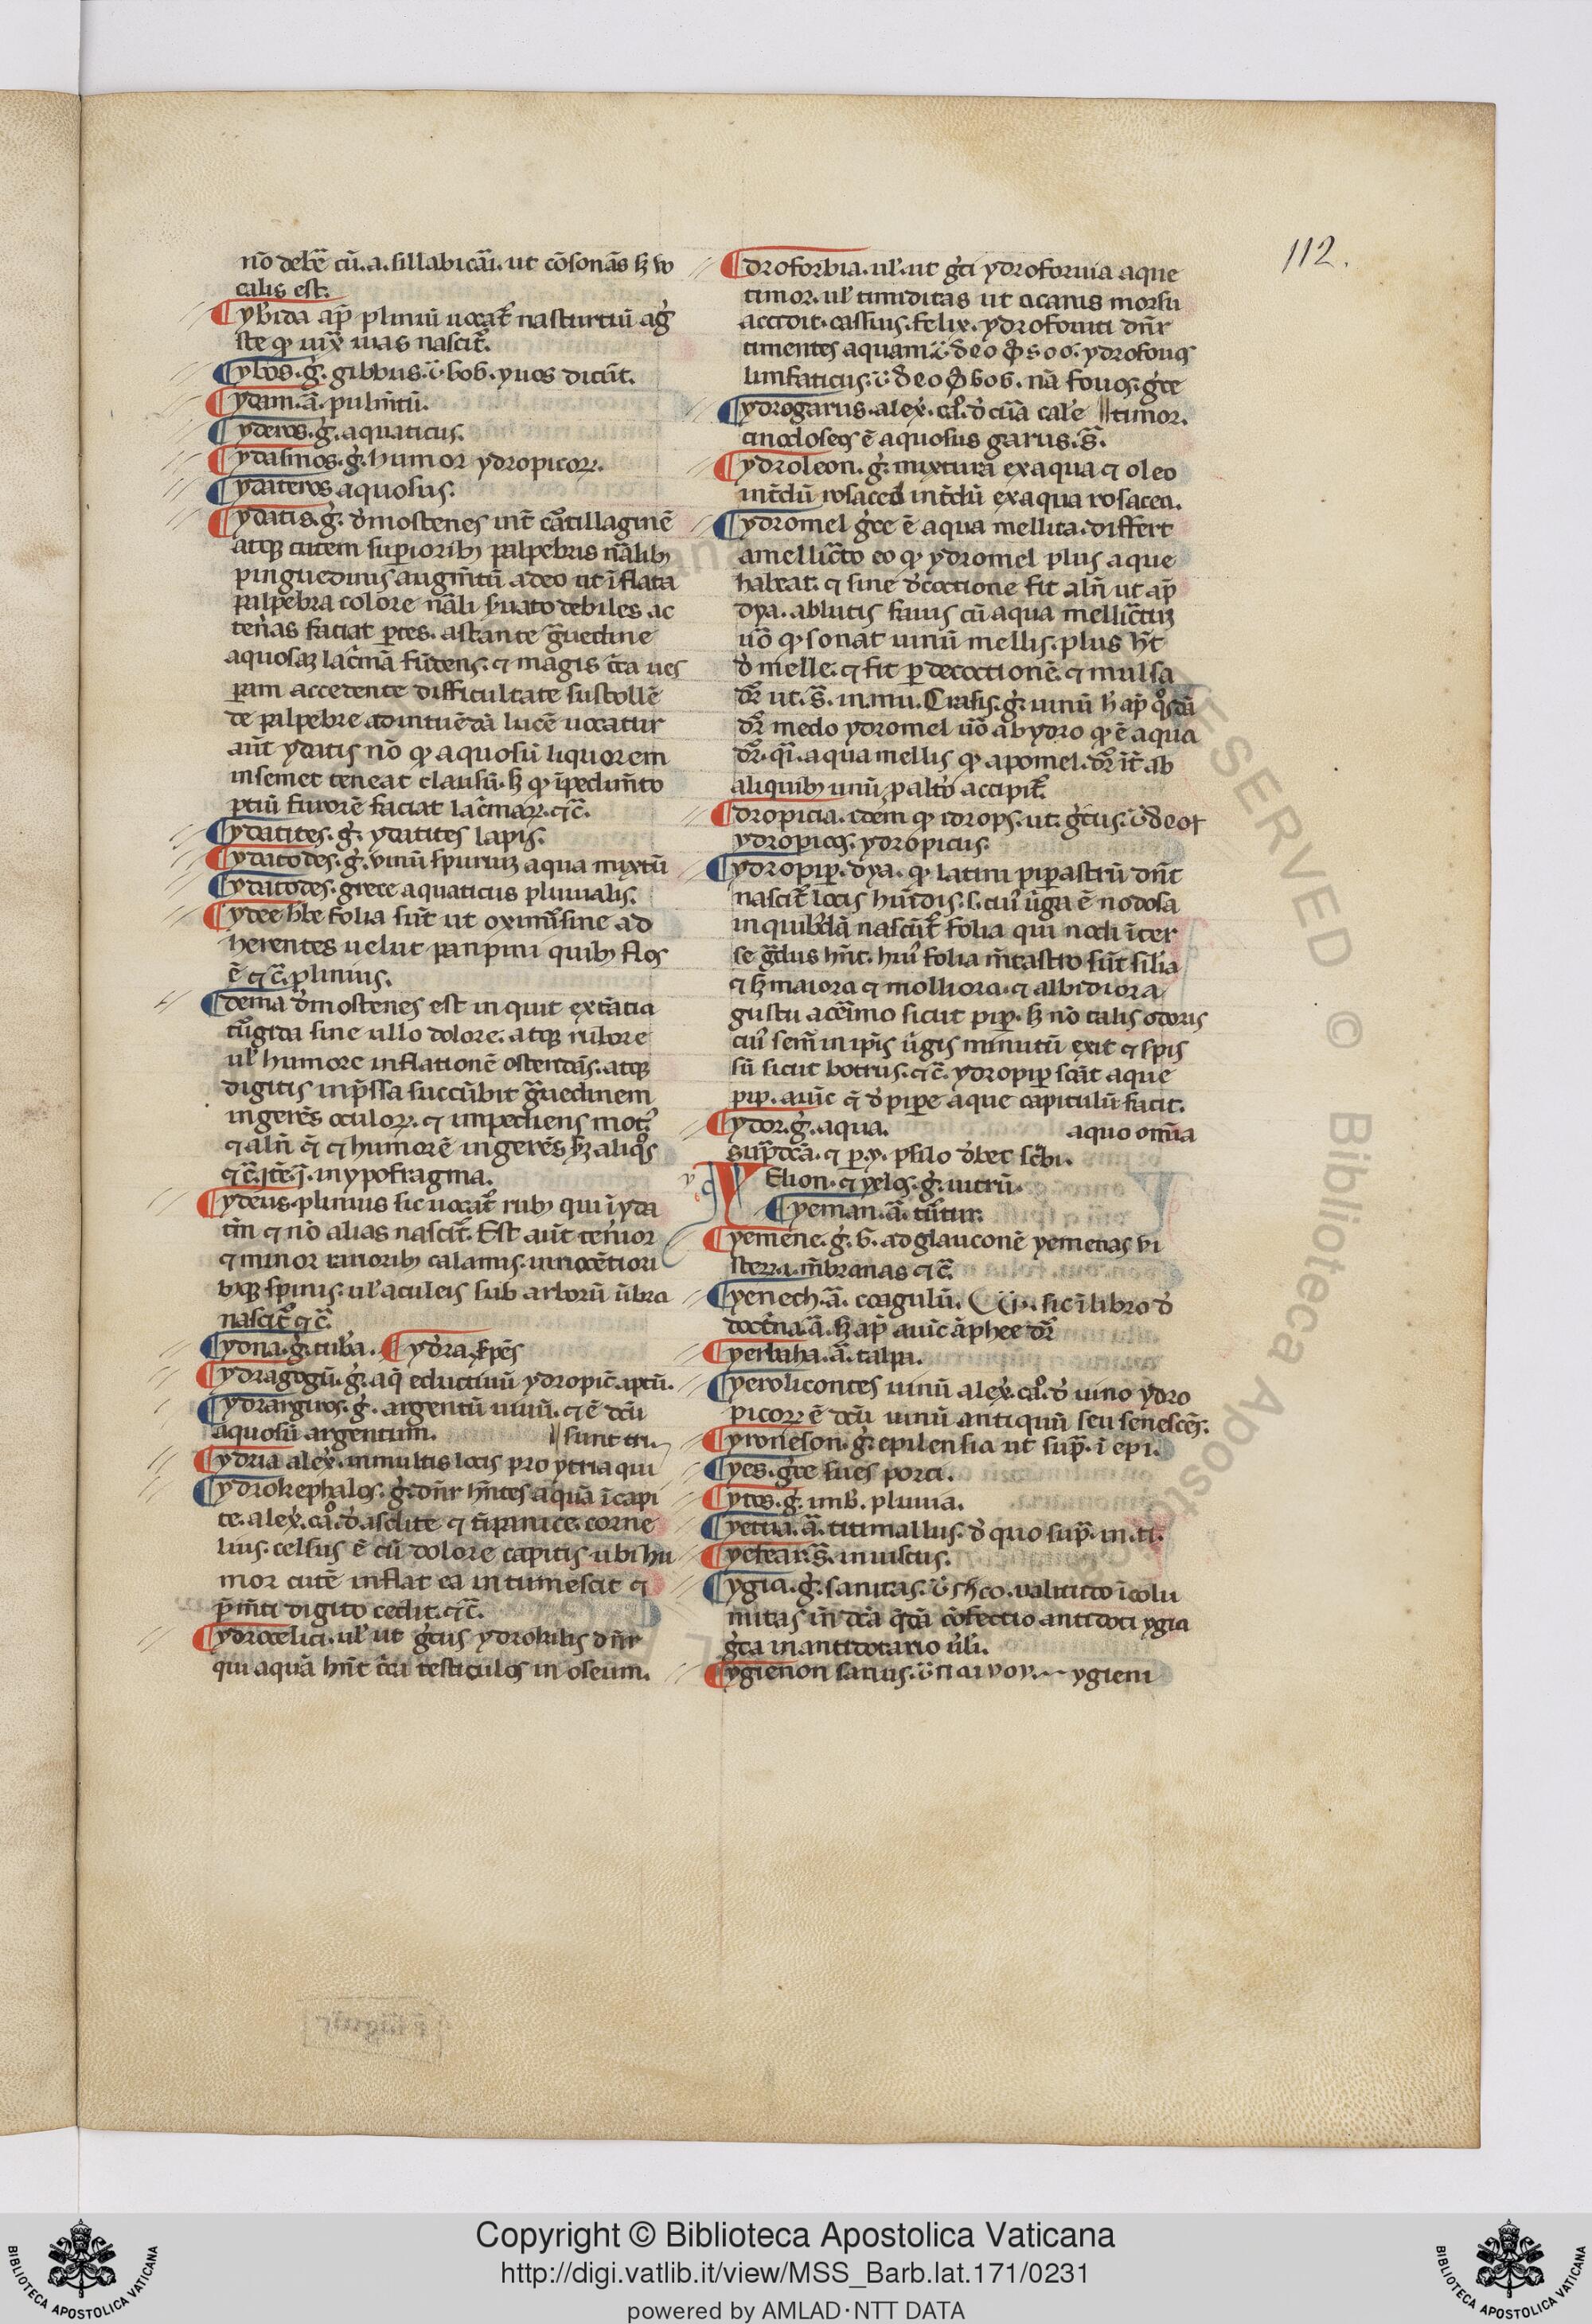 112.
nō debē cū. a. sillabicāi. ut cōsonās sꝫ vo
calis est.
ybida ap̄ pliniū uocat᷑ nasturtiū ag̃
ste qꝫ iux̃ uias nascit᷑.
ybos. g̃. gibbus. yuos dicūt.
ydam. ā. pulm̄tū.
yderos. g̃. aquaticus.
ydasmos. g̃. humor ydropicoꝝ.
ydateros aquosus.
ydatis. g̃. dmostenes int̄ cātillaginē
atqꝫ cutem supioribꝫ palpebris nālibꝫ
pinguedinis augm̄tū adeo ut īflata
palpebra colore nāli suato debiles ac
ten̄as faciat ptes. astante g̃uedine
aquosaꝫ lac̄mā fūdens. ⁊ magis c̄ca ues
peram accedente difficultate sustollē
de palpebre ad intuēdā lucē uocatur
aūt ydatis nō qꝫ aquosū liquorem
in semet teneat clausū. sꝫ qꝫ īpedim̄to
ptiū furorē faciat lac̄maꝝ. ⁊c̄.
ydatites. g̃. ydatites lapis.
ydatodes. g̃. vinū spuruꝫ aqua mixtū
ydatodes. grece aquaticus pluuialis.
ydee hb̄e folia sūt ut oxim̄sine ad
herentes uelut panpini quibꝫ flos
ē ⁊c̄. plinius.
dema dmostenes est inquit extātia
tūgida sine ullo dolore. atqꝫ rubore
ul᷑ humore inflationē ostendēs. atqꝫ
digitis inp̄ssa succūbit g̃uedinem
ingerēs oculoꝝ. ⁊ impediens mot᷑
⁊ alīi q̄ ⁊ humorē ingerēs sꝫ aliqos
⁊c̄. in ypofragma.
ydeus. plinius sic uocat᷑ rubꝫ qui ī yda
tm̄ ⁊ nō alias nascit᷑. Est aūt tenuior
⁊ minor rarioribꝫ calamis. innocētiori
bꝫqꝫ spinis. ul᷑ aculeis sub arborū ūbra
nascit᷑ ⁊c̄.
ydna. g̃. tuba. ydra. spēs
ydragogū. g̃. aq̄ eductiuū ydropic̄. aptū.
ydrargiros. g̃. argentū uiuū. ⁊ ē dc̄ū
aquosū argentum. ‖ sunt tri.
ydria alex̄. in multis locis pro ytria qui
ydrokephalos. g̃. dn̄r hn̄tes aquā ī capi
te. alex̄. ca̅o. d asclite ⁊ tīpanice. corne
lius. celsus ē cū dolore capitis ubi hu
mor cutē inflat ea intumescit ⁊
p̄m̄ti digito cedit. ⁊c̄.
ydrocelici. ul᷑ ut g̃cus ydrokilis dn̄r
qui aquā hn̄t c̄ca testiculos in oseum.
droforbia. ul᷑. ut g̃ci ydroforuia aque
timor. ul᷑ timiditas ut a canis morsu
accidit. cassius. felix. ydrofouici dn̄r
timentes aquam ydrofouos
limfaticus. nā fouos. g̃ce
ydrogarus. alex̄. ca̅o. d cura cal᷑e ‖ timor.
cinodoseos ē aquosus garus. s̄.
ydroleon. g̃. mixtura ex aqua ⁊ oleo
int̄dū rosaceo int̄dū ex aqua rosacea.
ydromel g̃ce ē aqua mellita. differt
a mellic̄to eo qꝫ ydromel plus aque
habeat. ⁊ sine d̄coctione fit alīi ut ap̄
dya. ablutis fauis cū aqua mellic̄tuꝫ
uō qꝫ sonat uinū mellis. plus hꝫt
d melle. ⁊ fit p decoctionē. ⁊ mulsa
dr̄ ut. s̄. in. mu. Crasis. g̃. uinū h ap̄ qosdā
dr̄ medo ydromel uō ab ydro qꝫ ē aqua
dr̄. q̄i. aqua mellis qꝫ apomel. dr̄ īt̄ ab
aliquibꝫ unū p alto accipit᷑.
dropicia. idem qꝫ idrops. ut. g̃cus.
ydropicos. ydropicus.
ydropip̄. dya. qꝫ latini pip̄astrū dn̄t
nascit᷑ locis humidis. s. cui᷑ uirga ē nodosa
in quibdā nascūt᷑ folia qui nodi īter
se g̃dus hn̄t. hui᷑ folia m̄tastro sūt sil̄ia
⁊ sꝫ maiora ⁊ molliora. ⁊ albidiora
gustu ac̄rimo sicut pip̄. sꝫ nō talis odoris
cui᷑ sem̄ in ip̄is uirgis minutū exit ⁊ spis
sū sicut botrus. ⁊c̄. ydropip̄ sōat aque
pip̄. auic̄ q̄ d pip̄e aque capitulū facit.
ydor. g̃. aqua. a quo om̄ia
sup̄dc̄a. ⁊ p. y. psilo d̄bet sc̄bi.
y Elion. ⁊ yelos. g̃. uitrū.
yeman. ā.
yemene. g̃. G. ad glauconē yemenas vi
sterra. m̄branas ⁊c̄.
yenech. ā. coagulū. sic ī libro d
doct̄na. ā. sꝫ ap̄ auic̄ āphee dr̄
yerbaha. ā. talpa.
yerolicontes uinū alex̄. ca̅o. d uino ydro
picoꝝ ē dc̄ū uinū antiquū seu senescēs.
yroneson. g̃. epilensia ut sup̄. ī epi.
yes. g̃ce sues porci.
ytos. g̃. imb̄. pluuia.
yetua. ā. titimallus. d quo sup̄. in. ti.
yefear. s̄. in uiscus.
ygia. g̃. sanitas. ualitudo īcolu
mitas in̄ dc̄a q̄dā cōfectio antidoti ygia
g̃ca in antidotario uīli.
ygienon sanus. ygieni
Copyright © Biblioteca Apostolica Vaticana
http://digi.vatlib.it/view/MSS_Barb.lat.171/0231
powered by AMLAD·NTT DATA
BIBLIOTECA APOSTOLICA VATICANA
BIBLIOTECA APOSTOLICA VATICANA